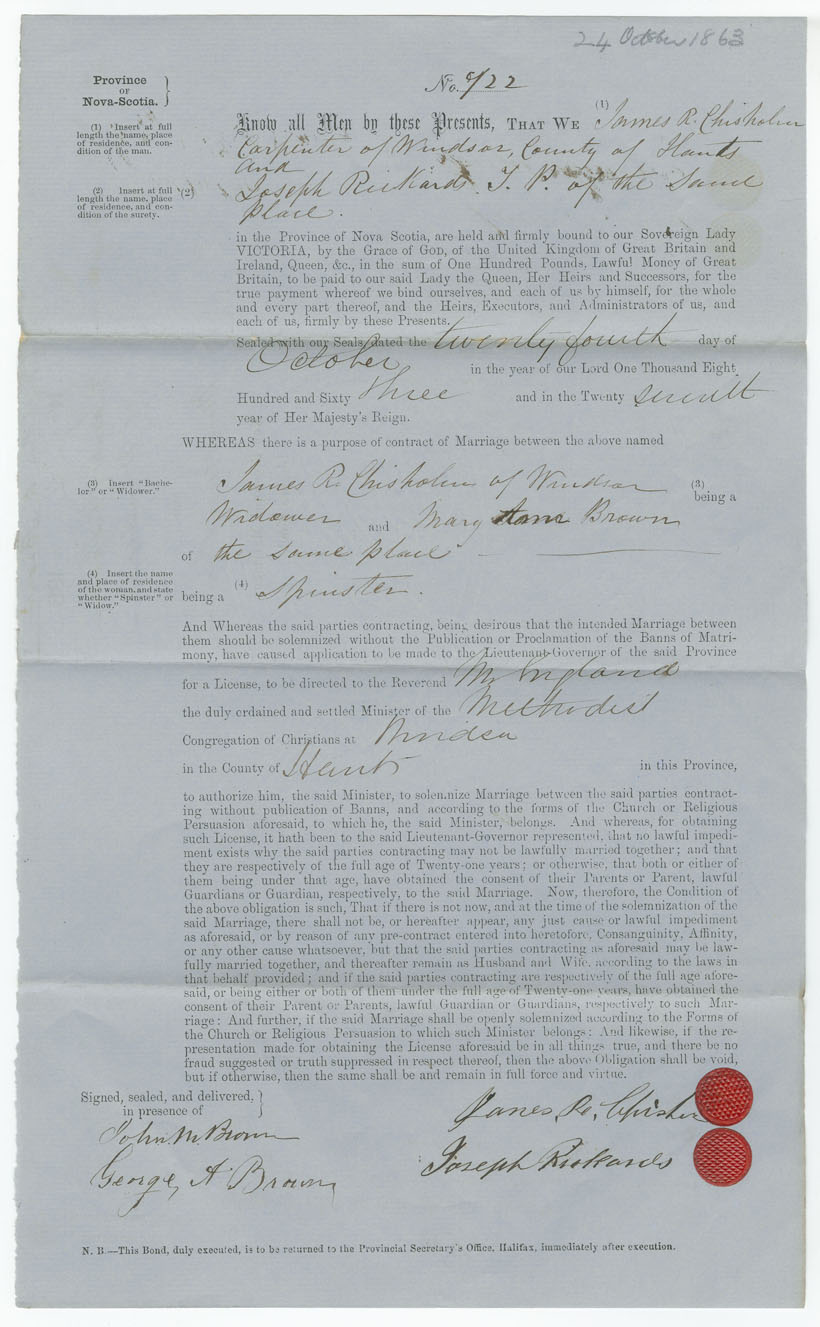 24 October 1863
Province
OF
Nova-Scotia.
No. 722
(1) Insert at full
length the name, place
of residence, and con-
dition of the man.
Know all Men by these Presents, THAT WE (1) James R. Chisholm
Carpenter of Windsor, County of Hants
and
(2) Insert at full
length the name, place
of residence, and con-
dition of the surety.
(2) Joseph Rickards. J. P. of the same
place.
in the Province of Nova Scotia, are held and firmly bound to our Sovereign Lady
VICTORIA, by the Grace of GOD, of the United Kingdom of Great Britain and
Ireland, Queen, &c., in the sum of One Hundred Pounds, Lawful Money of Great
Britain, to be paid to our said Lady the Queen, Her Heirs and Successors, for the
true payment whereof we bind ourselves, and each of us by himself, for the whole
and every part thereof, and the Heirs, Executors, and Administrators of us, and
each of us, firmly by these Presents.
Sealed with our Seals, dated the twenty fourth day of
October in the year of our Lord One Thousand Eight
Hundred and Sixty three and in the Twenty
year of Her Majesty's Reign.
WHEREAS there is a purpose of contract of Marriage between the above named
(3) Insert "Bache-
lor" or "Widower."
James R. Chisholm of Windsor (3)
being a
Widower and Mary Ann Brown
of the same place
(4) Insert the name
and place of residence
of the woman, and state
whether "Spinster" or
"Widow."
being a (4) Spinster.
And Whereas the said parties contracting, being desirous that the intended Marriage between
them should be solemnized without the Publication or Proclamation of the Banns of Matri-
mony, have caused application to be made to the Lieutenant-Governor of the said Province
for a License, to be directed to the Reverend Mr England
the duly ordained and settled Minister of the Methodist
Congregation of Christians at Windsor
in the County of Hants in this Province,
to authorize him, the said Minister, to solemnize Marriage between the said parties contract-
ing without publication of Banns, and according to the forms of the Church or Religious
Persuasion aforesaid, to which he, the said Minister, belongs. And whereas, for obtaining
such License, it hath been to the said Lieutenant-Governor represented, that no lawful impedi-
ment exists why the said parties contracting may not be lawfully married together; and that
they are respectively of the full age of Twenty-one years; or otherwise, that both or either of
them being under that age, have obtained the consent of their Parents or Parent, lawful
Guardians or Guardian, respectively, to the said Marriage. Now, therefore, the Condition of
the above obligation is such, That if there is not now, and at the time of the solemnization of the
said Marriage, there shall not be, or hereafter appear, any just cause or lawful impediment
as aforesaid, or by reason of any pre-contract entered into heretofore, Consanguinity, Affinity,
or any other cause whatsoever, but that the said parties contracting as aforesaid may be law-
fully married together, and thereafter remain as Husband and Wife, according to the laws in
that behalf provided; and if the said parties contracting are respectively of the full age afore-
said, or being either or both of them under the full age of Twenty-one years, have obtained the
consent of their Parent or Parents, lawful Guardian or Guardians, respectively to such Mar-
riage: And further, if the said Marriage shall be openly solemnized according to the Forms of
the Church or Religious Persuasion to which such Minister belongs: And likewise, if the re-
presentation made for obtaining the License aforesaid be in all things true, and there be no
fraud suggested or truth suppressed in respect thereof, then the above Obligation shall be void,
but if otherwise, then the same shall be and remain in full force and virtue.
Signed, sealed, and delivered,
in presence of
James R. Chisholm
John M Brown
Joseph Rickards
George A. Brown
N. B.—This Bond, duly executed, is to be returned to the Provincial Secretary's Office, Halifax, immediately after execution.